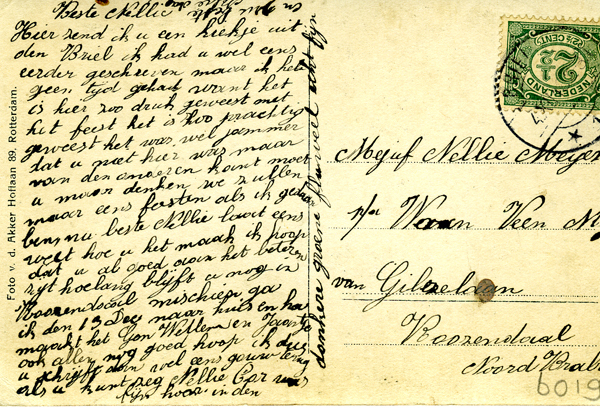 Beste Nellie
Hier zend ik u een kiekje uit
den Briel ik had u wel eens
eerder geschreven maar ik heb
geen tijd gehad want het
is hier zoo druk geweest met
het feest het is zoo prachtig
geweest het was wel jammer
dat u niet hier was maar
van den anderen kant moet
u maar denken we zullen
maar eens feesten als ik
ben nu beste Nellie laat eens
weet hoe u het maak ik hoop
dat u al goed aan het beteren
zyt hoelang blijft u nog in
Roozendaal mischien ga
ik den 13 Dec naar huis en hoe
maakt het Jan Willem en
ook allen nog goed hoop ik dus
u schrijft dan wel eens gouw terug
als u kunt zeg Nellie Cor was
fijn hoor in den
donkere groene fluweel echt fijn
Foto v. d. Akker Hoflaan 89, Rotterdam.
NEDERLAND
2½
(2½ CENT)
Mejuf Nellie Meyer
p/a Waan Veen
van Gilselaan
Roozendaal
Noord Brab
6019